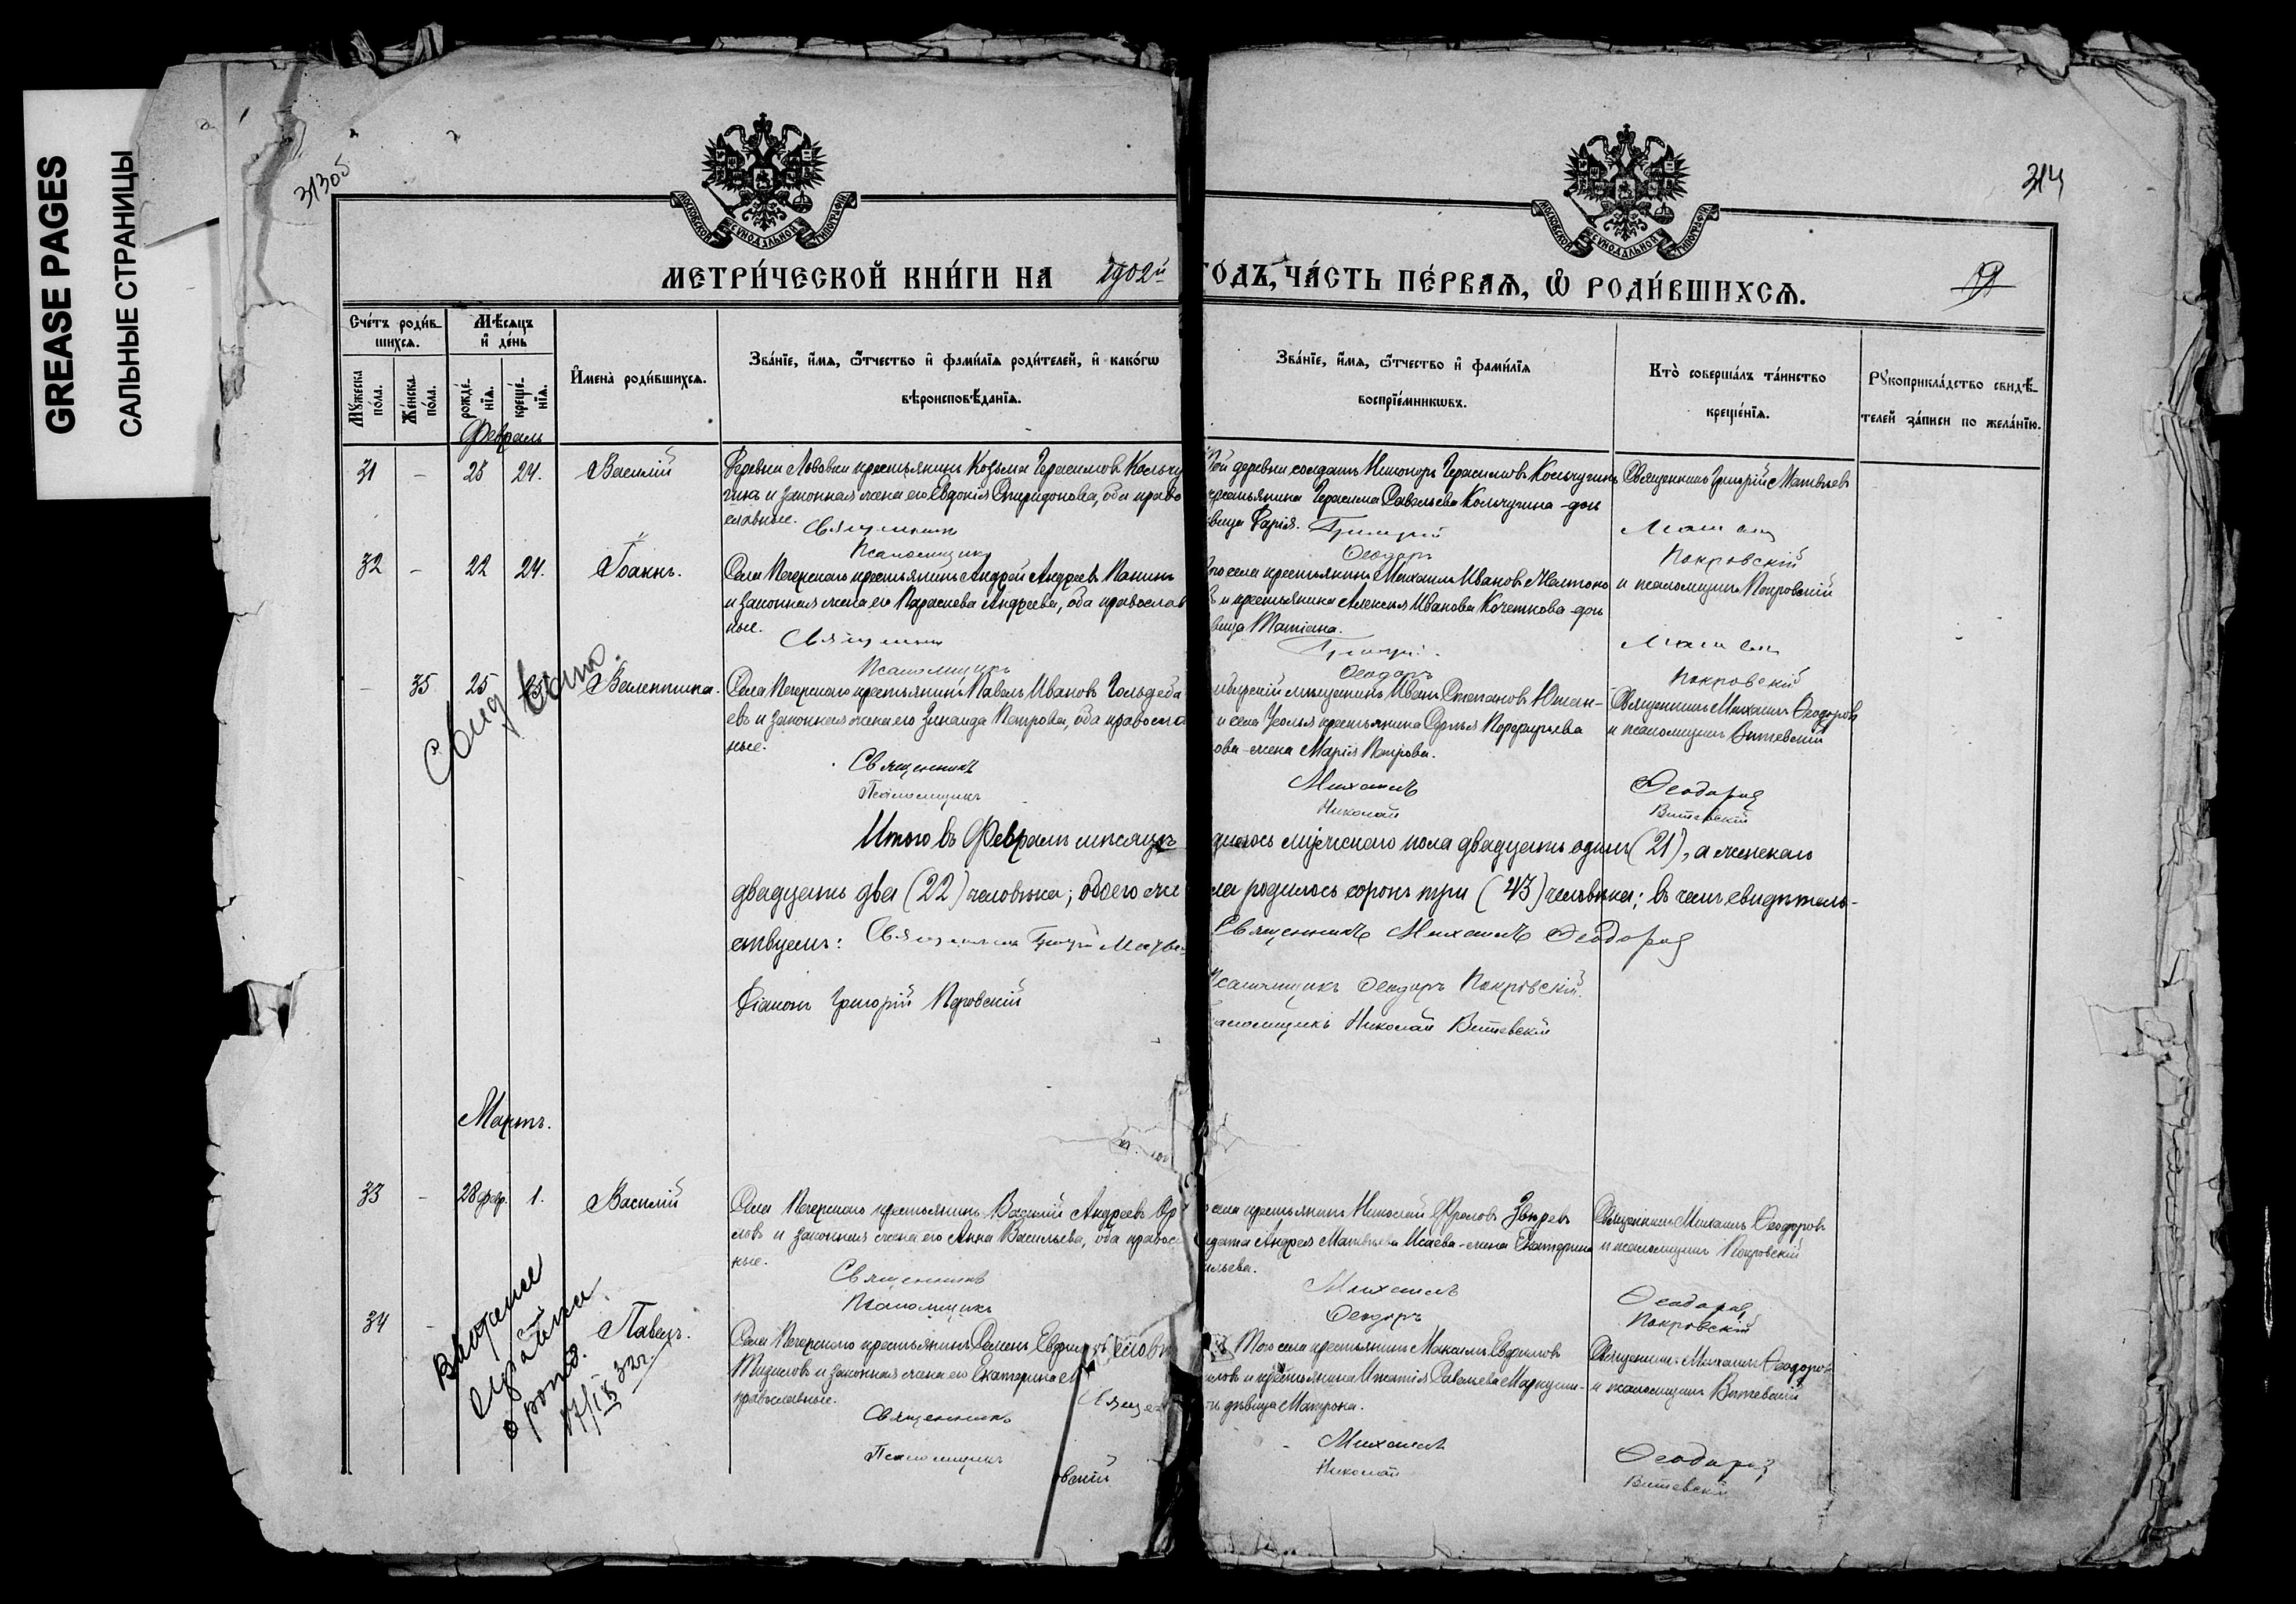 GREASE PAGES
САЛЬНЫЕ СТРАНИЦЫ
313об
314
МОСКОВСКОЙ СУНОДАЛЬНОЙ ТИПОГРАФІИ
МОСКОВСКОЙ СУНОДАЛЬНОЙ ТИПОГРАФІИ
МЕТРИ́ЧЕСКОЙ КНИ́ГИ НА 1902й
ГОДЪ, ЧА́СТЬ ПЕ́РВАѦ, Ѡ РОДИ́ВШИХСѦ.
Сче́тъ роди́в-
шихсѧ.
Мѣсѧцъ
и де́нь
Мꙋжеска по́ла.
Же́нска по́ла.
рожде́нїѧ.
креще́нїѧ.
Имена̀ роди́вшихсѧ.
Зва́нїе, и́мѧ, ѻ҆́тчество и фами́лїѧ роди́телей, и како́гѡ
вѣроисповѣ́данїѧ.
Зва́нїе, и́мѧ, ѻ҆́тчество и фами́лїѧ
воспрїе́мникѡвъ.
Кто̀ соверша́лъ та́инство
креще́нїѧ.
Рꙋкоприкла́дство свидѣ́-
телей за́писи по жела́нїю.
Февраль
31 - 23 24. Василій
Деревни Лбовки крестьянинъ Козьма Герасимовъ Кольчу
гинъ и законная жена его Евдокія Спиридонова, оба право
славные.
Священникъ
Псаломщикъ
той деревни солдатъ Никаноръ Герасимовъ Кольчугинъ
крестьянина Герасима Савельева Кольчугина-дочь
вица Дарія. Григорій
Ѳеодоръ
Священникъ Григорій Матвѣевъ
Покровскій
32 - 22 24. Іоаннъ.
Села Печерскаго крестьянинъ Андрей Андреевъ Панинъ
и законная жена его Параскева Андреева, оба православ
ные.
Священникъ
Псаломщикъ
того села крестьянинъ Михаилъ Ивановъ
и крестьянина Алексѣя Иванова Кочеткова-дочь
вица Татіана.
Григорій
Ѳеодоръ
и псаломщикъ Покровскій
Покровскій
- 35 25 25 Валентина.
Села Печерскаго крестьянинъ Павелъ Ивановъ Гольдеба
евъ и законная жена его Зинаида Петрова, оба православ
ные.
Священникъ
Псаломщикъ
мѣщанинъ Иванъ Степановъ
и села Усолья крестьянина Сергѣя Порфирьева
ова-жена Марія Петрова.
Михаилъ
Николай
Священникъ Михаилъ Ѳеодоровъ
и псаломщикъ Витевскій
Ѳеодоровъ
Витевскій
Итого въ Февралѣ мѣсяцѣ
дилось мужескаго пола двадцать одинъ (21), а женскаго
двадцать два (22) человѣка; обоего же
ла родилось сорокъ три (43) человѣка; въ чемъ свидѣтель-
ствуемъ: Священникъ Григорій Матвѣе
Священникъ Михаилъ Ѳеодоровъ
Діаконъ Григорій Перовскій
Псаломщикъ Ѳеодоръ Покровскій.
саломщикъ Николай Витевскій
Мартъ.
33 - 28 февр. 1. Василій
Села Печерскаго крестьянинъ Василій Андреевъ Ор
ловъ и законная жена его Анна Васильева, оба правосл
ные.
Священникъ
Псаломщикъ
села крестьянинъ Николай Фроловъ Звѣревъ
лдата Андрея Матвѣева Исаева-жена Екатерина
ильева.
Михаилъ
Ѳеодоръ
Священникъ Михаилъ Ѳеодоровъ
и псаломщикъ Покровскій
Ѳеодоровъ
Покровскій
34 - Павелъ.
о рожд.
17/IX 32г.
Села Печерскаго крестьянинъ Семенъ
и законная жена его Екатерина
православные.
Священникъ
Псаломщикъ
овскій
Того села крестьянинъ Максимъ Евфимовъ
и крестьянина Игнатія Савельева
дѣвица Матрона.
Михаилъ
Николай
Священникъ Михаилъ Ѳеодоровъ
и псаломщикъ Витевскій
Ѳеодоровъ
Витевскій